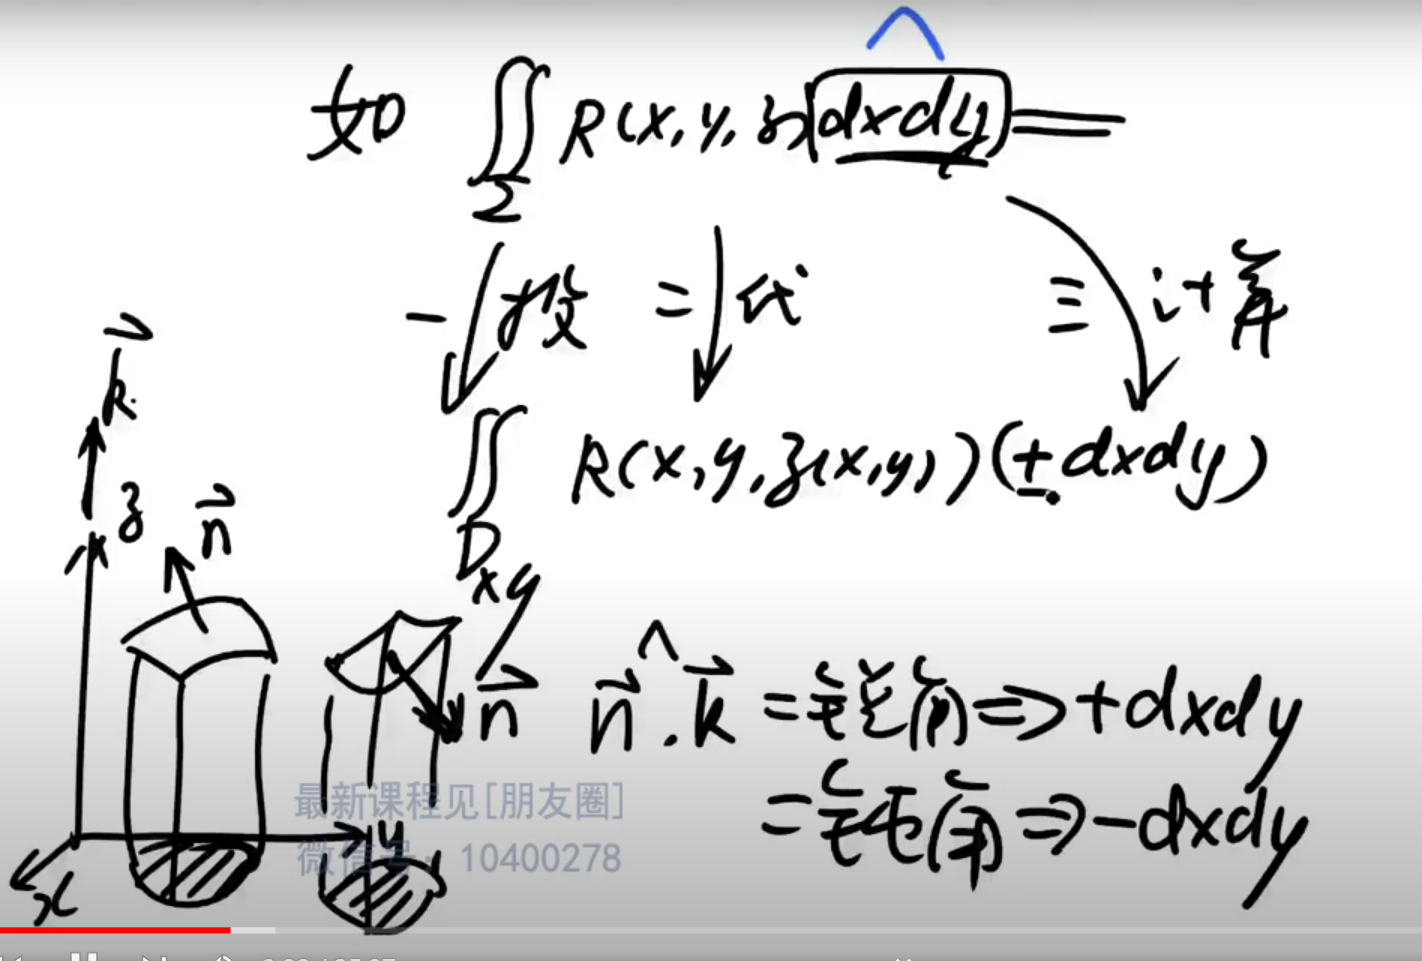 如 ∬_Σ R(x, y, z) dxdy =
一 投 二 代 三 计算
∬_Dxy R(x, y, z(x, y)) (± dxdy)
k⃗
z n⃗
n⃗ n⃗ ^. k⃗ = 锐角 ⇒ + dxdy
= 钝角 ⇒ - dxdy
最新课程见[朋友圈]
y
微信号: 10400278
x